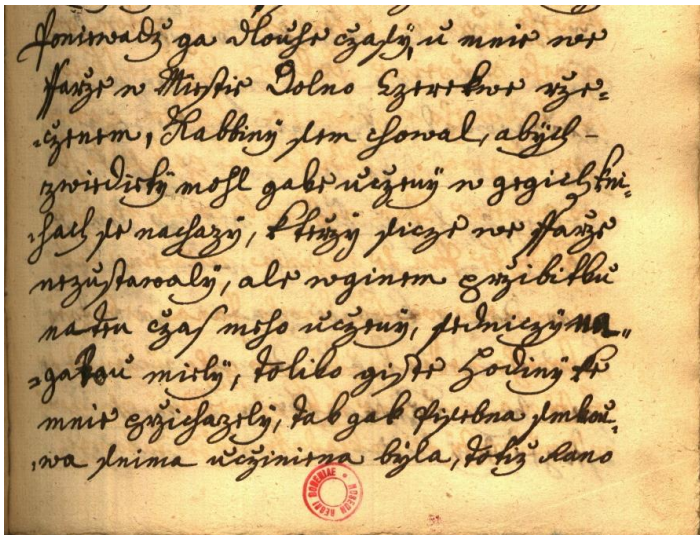 Poniewadž ga dlouhe czasy, u mnie we
ffarze w Miestie Dolno Czerekwe rze=
=czenem, Rabbiny sem chowal, abych
zwiedieti mohl gake uczeny w gegich kni=
=hach se nachazy, kterzy sicze we ffarze
nezustawaly, ale w ginem przibitku
na ten czas meho uczeny, sedniczy na=
=gatau miely, toliko giste hodiny ke
mnie przichazely, tak gak pisebna smlau=
=wa snima ucziniena byla, totiž Rano
MUSEUM REGNI BOHEMIAE